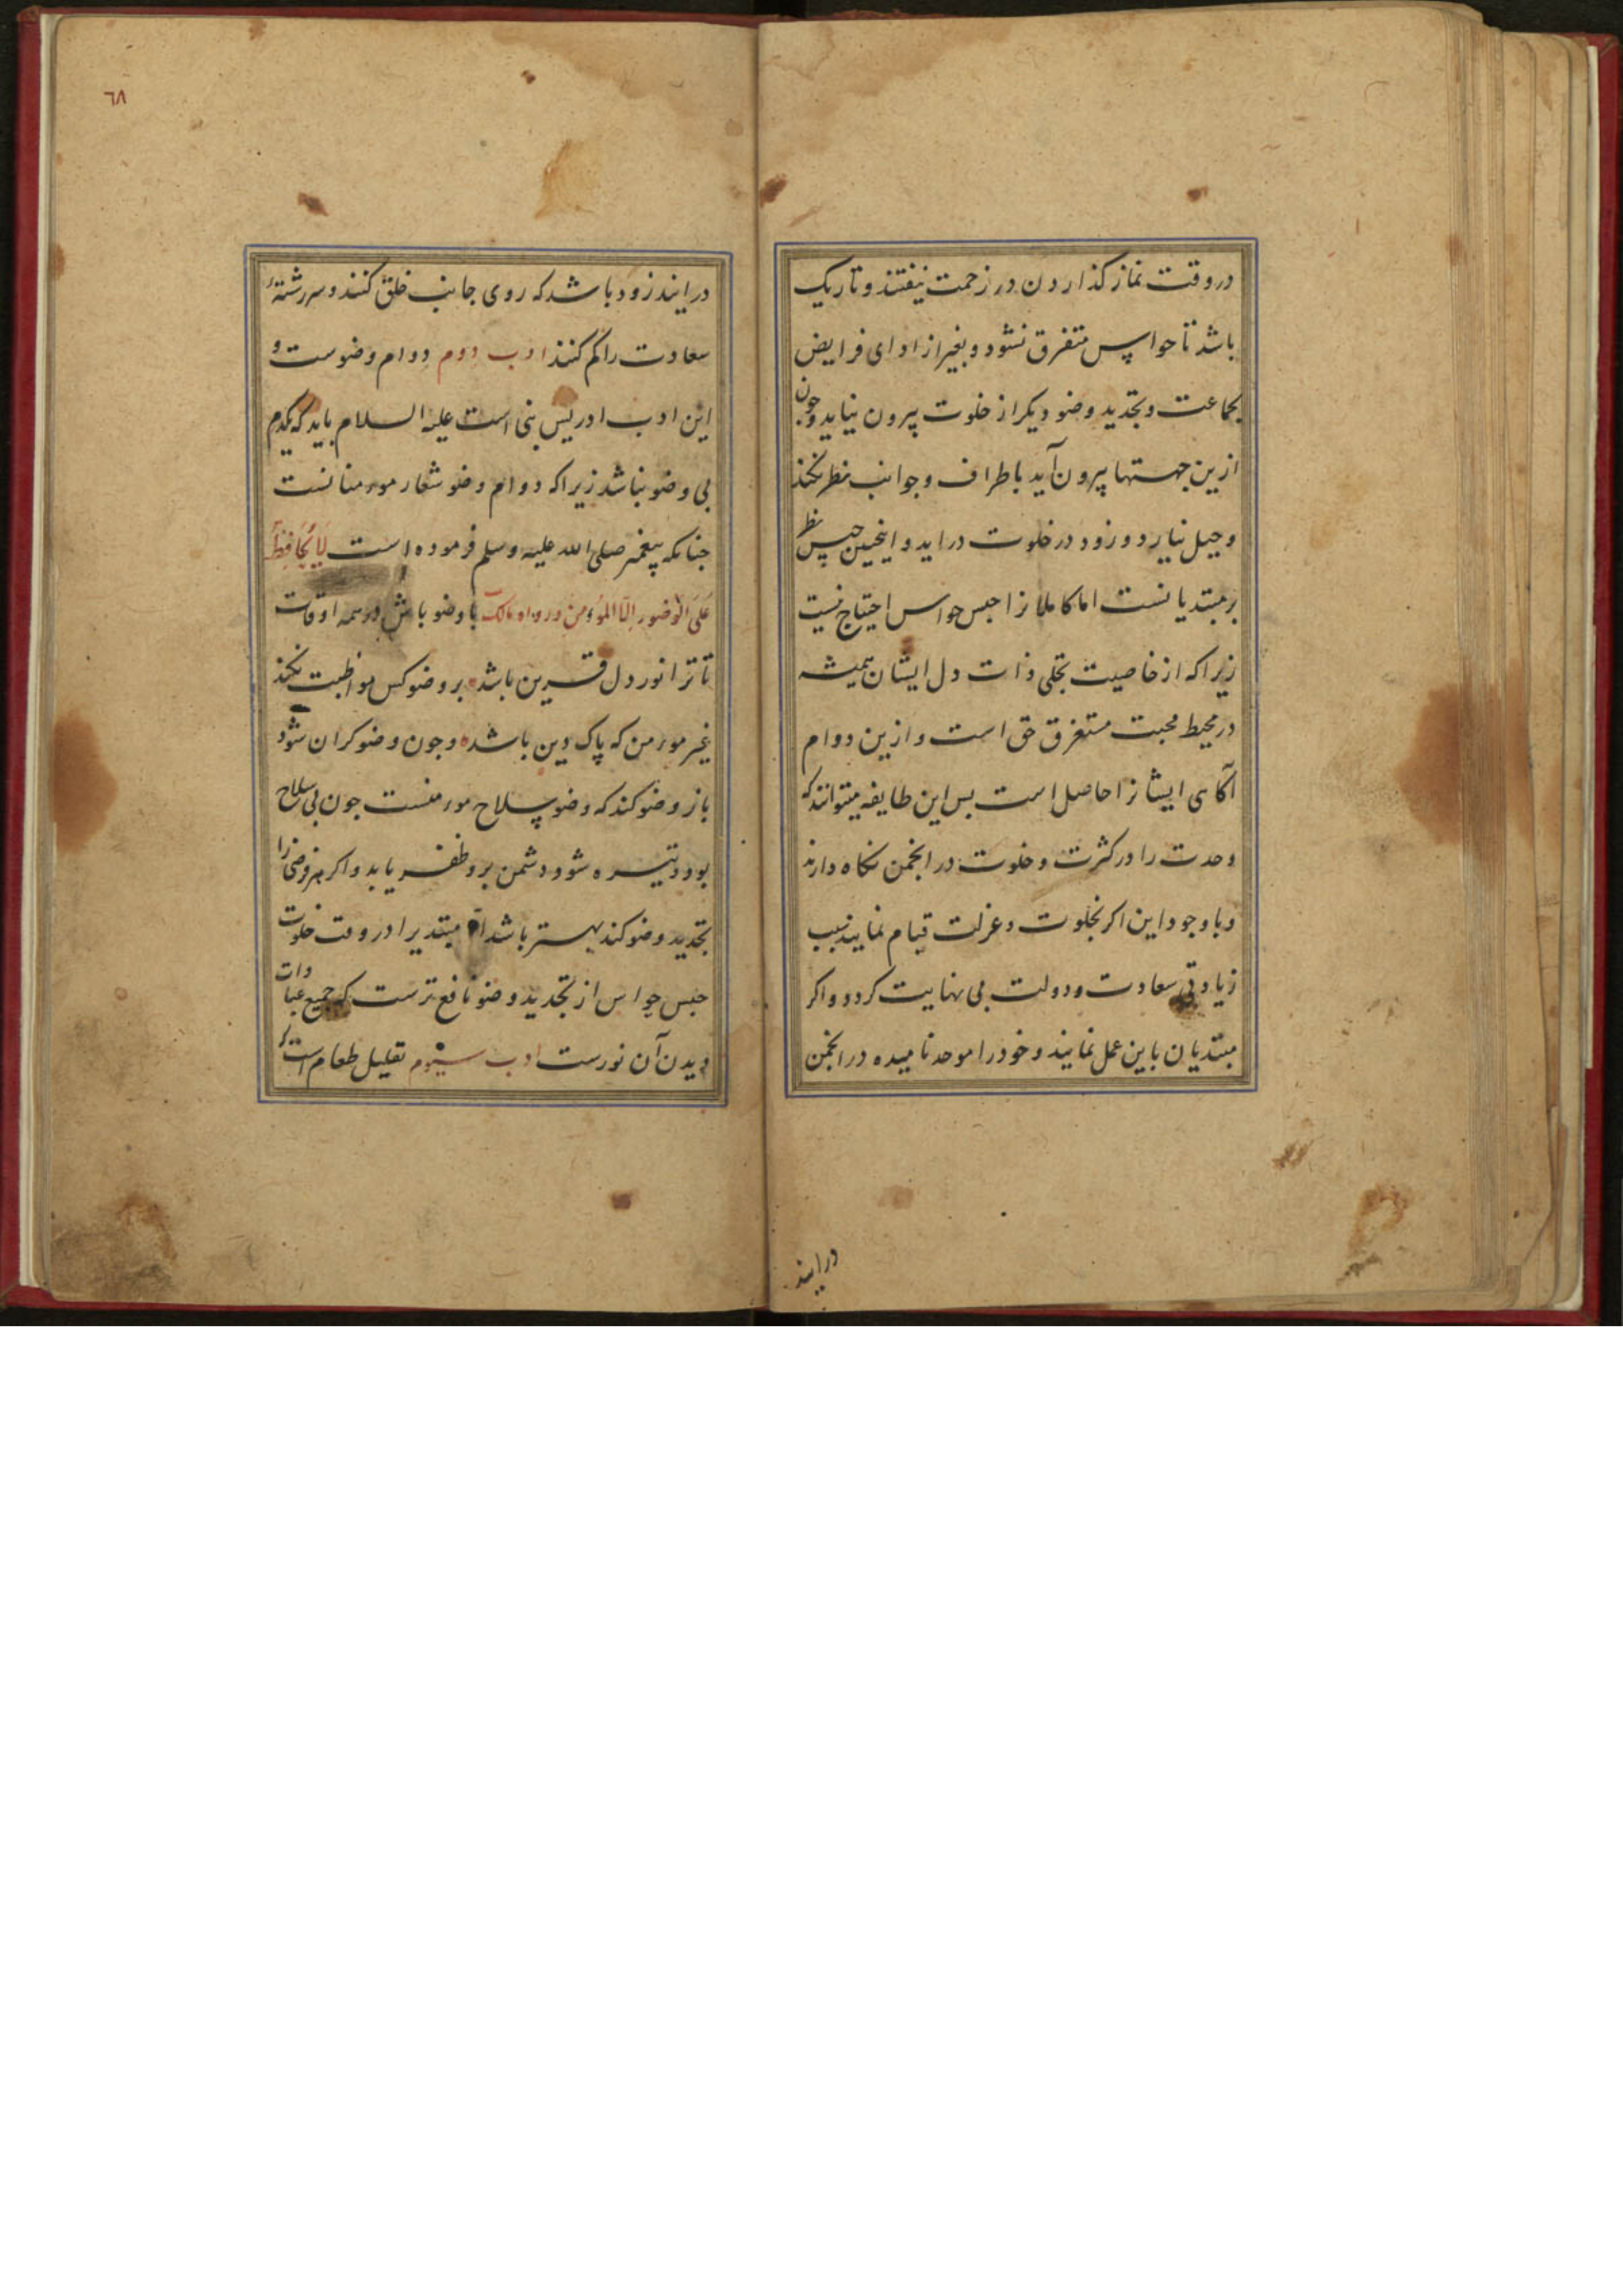 در وقت نماز کذاردن در زحمت نیفتند و تاریک
باشد تا حواس متفرق نشود و بغیر از ادای فرایض
بجماعت و تجدید وضو دیکر از خلوت بیرون نیاید و جون
ازین جهتها بیرون آید باطراف و جوانب نظر نکند
و جیل نیارد و زود در خلوت دراید و اینجنین حبس نظر
بر مبتدیانست اما کاملانرا حبس حواس احتیاج نیست
زیرا که از خاصیت تجلی ذات دل ایشان همیشه
در محیط محبت مستغرق حق است و ازین دوام
آکاهی ایشانرا حاصل است بس این طایفه میتوانند که
وحدت را در کثرت و خلوت در انجمن نکاه دارند
و با وجود این اکر بخلوت و عزلت قیام نمایند سبب
زیادتی سعادت و دولت بی نهایت کردد و اکر
مبتدیان باین عمل نمایند و خود را موحد نامیده در انجمن
درایند
٦٨
درایند زود باشد که روی جانب خلق کنند و سررشتهٔ
سعادت را کم کنند ادب دوم دوام وضوست و
این ادب ادریس نبی است علیه السلام باید که یکدم
بی وضو نباشد زیرا که دوام وضو شعار مؤمنانست
جنانکه پیغمبر صلی الله علیه وسلم فرموده است لَا یُحَافِظُ
عَلَی الْوُضُوءِ اِلَّا الْمُؤْمِنُ رواه مالک با وضو باش در همه اوقات
تا ترا نور دل قرین باشد بر وضو کس مواظبت نکند
غیر مؤمن که پاک دین باشد و جون وضو کران شود
باز وضو کند که وضو سلاح مؤمنست جون بی سلاح
بود و تیره شود دشمن برو ظفر یابد و اکر هر فرضی را
تجدید وضو کند بهتر باشد اما مبتدیرا در وقت خلوت
حبس حواس از تجدید وضو نافع ترست که جمیع عبادات
دیدن آن نورست ادب سیوم تقلیل طعام است که